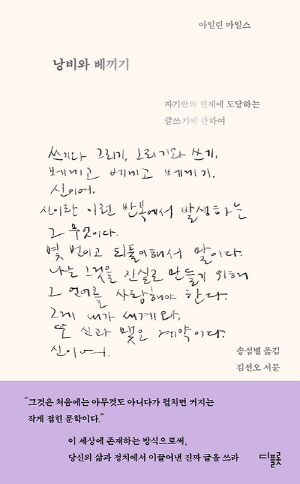 아일린 마일스
낭비와 베끼기
자기만의 현재에 도달하는
글쓰기에 관하여
쓰기와 그리기, 그리기와 쓰기,
베끼고 베끼고 베끼기,
신이여.
신이란 이런 반복에서 발생하는
그 무엇이다.
몇 번이고 되풀이해서 말이다.
나는 그것을 진실로 만들기 위해
그 언어를 사랑해야 한다.
그게 내가 세계와,
또 신과 맺은 계약이다.
신이여.
송섬별 옮김
김선오 서문
“그것은 처음에는 아무것도 아니다가 펼치면 커지는
작게 접힌 문학이다.”
이 세상에 존재하는 방식으로써,
당신의 삶과 정치에서 이끌어낸 진짜 글을 쓰라
디플롯